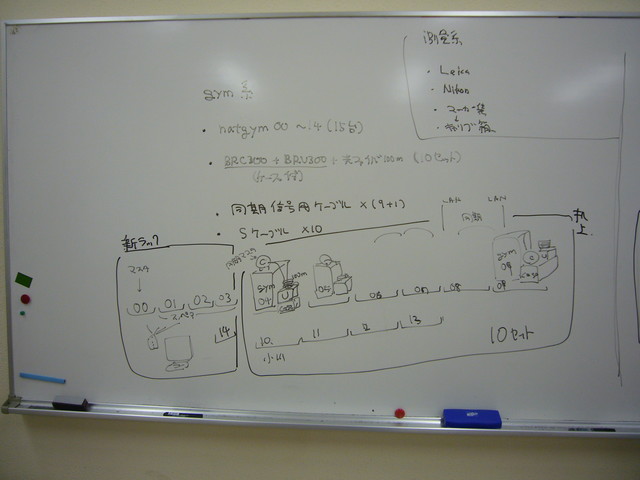 測量系
・Leica
・Nikon
・マーカー集
・キャリブ箱
gym 系
・natgym 00 〜 14 (15台)
・BRC300 + BRU300 + 光ファイバ100m (10セット)
(ケース付)
・同期信号用ケーブル × (9+1)
・Sケーブル ×10
新ラック
机上
LAN
LAN
同期
マスタ
00 01 02 03
14
gym
04
100m
05
06 07 08 09
gym
09
10 11 12 13
10セット